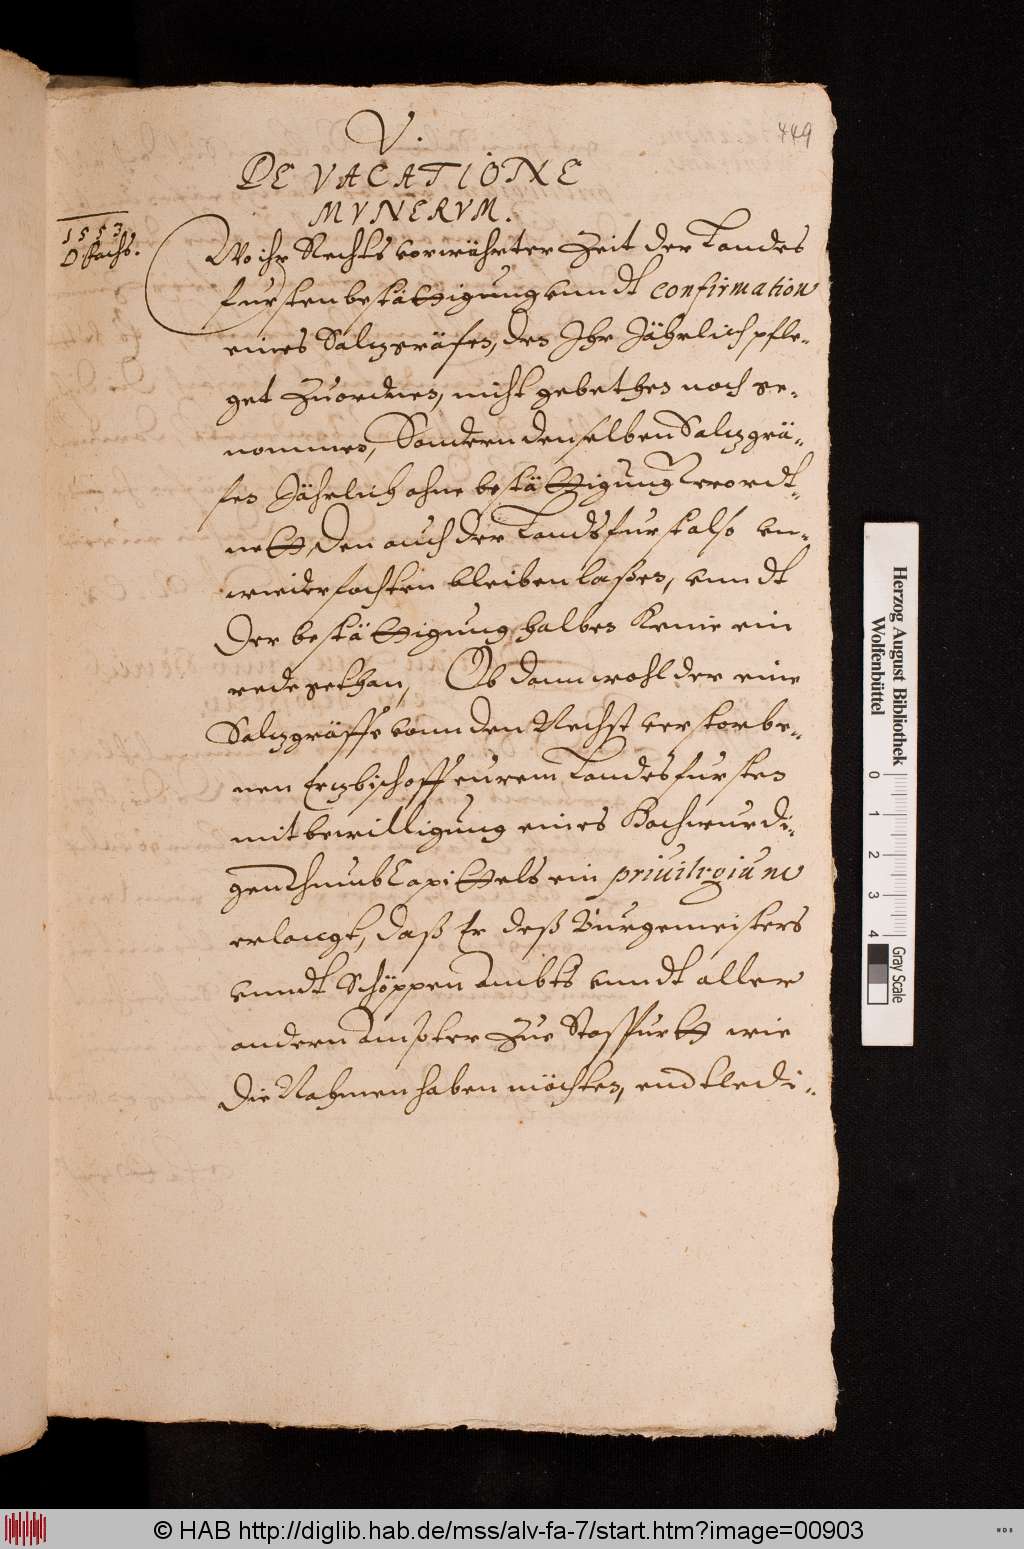 449
V.
DE VACATIONE
MVNERVM.
1553
Wo ihr Rechts vorwährter Zeit der Landes
fursten bestättigung vnndt confirmation
eines Saltzgräfen, den Ihr Jährlich pfle-
get Zuordnen, nicht gebethen noch ge-
nommen, Sondern denselben Saltzgrä-
fen Jährlich ohne bestättigung verordt-
nett, den auch der Landsfurst also vn-
wiederfochten bleiben laßen, vnndt
der bestättigung halben Keine ein
rede gethan, Ob dann wohl der eine
Saltzgräffe vonn den Nechst verstorbe-
nen Ertzbischoff eurem Landesfursten
mit bewilligung eines Hochwurdi-
gen Thumb Capittels ein priuilegium
erlangt, daß Er deß Burgemeisters
vnndt Schöppen Ambts vnndt aller
andern Ampter Zue Stasfurtt wie
die Nahmen haben möchten, endtledi-
Herzog August Bibliothek
Wolfenbüttel
0 1 2 3 4
Gray Scale
© HAB http://diglib.hab.de/mss/alv-fa-7/start.htm?image=00903